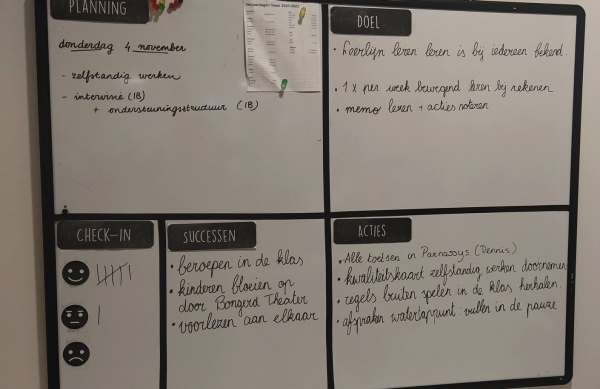 PLANNING
donderdag 4 november
- zelfstandig werken
- intervisie (IB)
+ ondersteuningsstructuur (IB)
DOEL
• Leerlijn leren leren is bij iedereen bekend.
• 1 x per week bewegend leren bij rekenen
• memo lezen + acties noteren
CHECK-IN
SUCCESSEN
• beroepen in de klas
• kinderen bloeien op
door Bongerd Theater
• voorlezen aan elkaar
ACTIES
• Alle toetsen in Parnassys (Dennis)
• kwaliteitskaart zelfstandig werken doornemen
• regels buiten spelen in de klas herhalen.
• afspraken watertappunt: vullen in de pauze